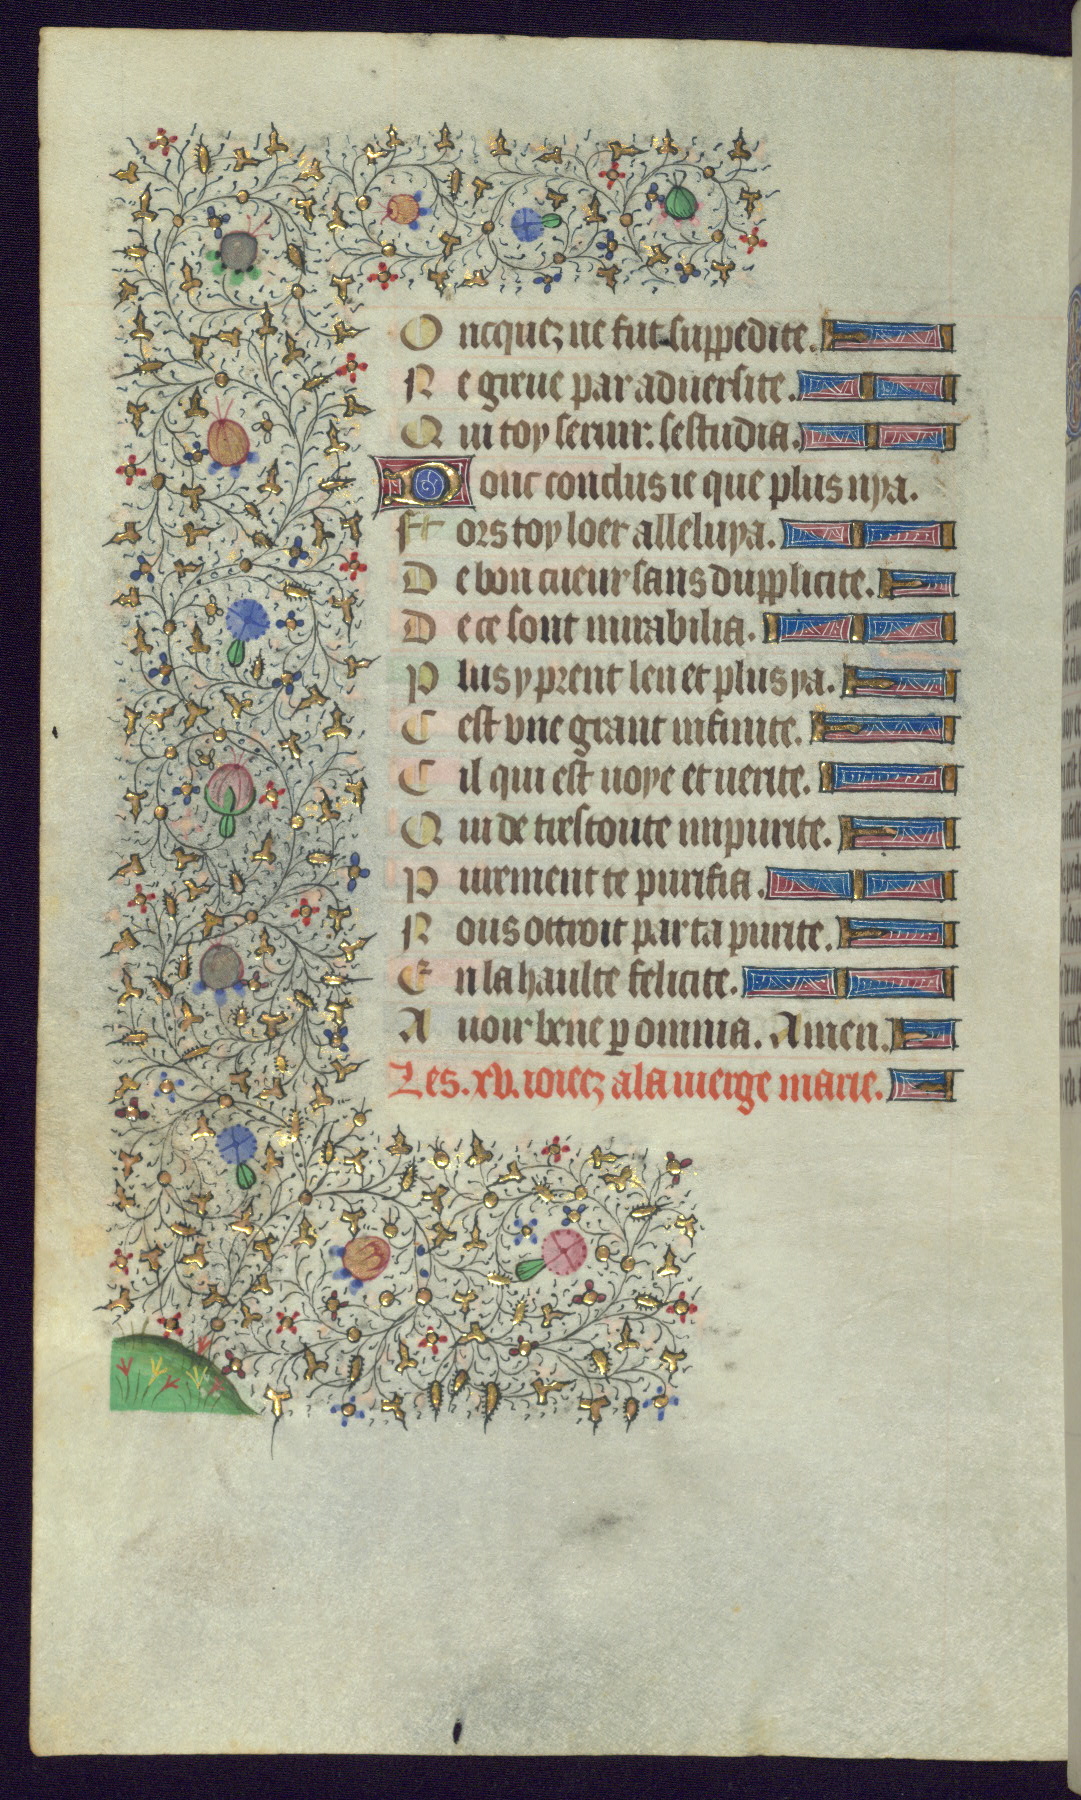 Oncquez ne fut suppedite.
Ne greue par aduersite.
Qui toy seruir. sestudia.
Donc conclus ie que plus nya.
Fors toy loer alleluya.
De bon cueur sans dupplicite.
De ce sont mirabilia.
Plus y prent len et plus ya.
Cest vne grant infinite.
Cil qui est uoye et uerite.
Qui de trestoute impurite.
Purement te purifia.
Nous ottroit par ta purite.
En la haulte felicite.
Auoir bene p omnia. Amen.
Les .xv. ioiez a la uierge marie.